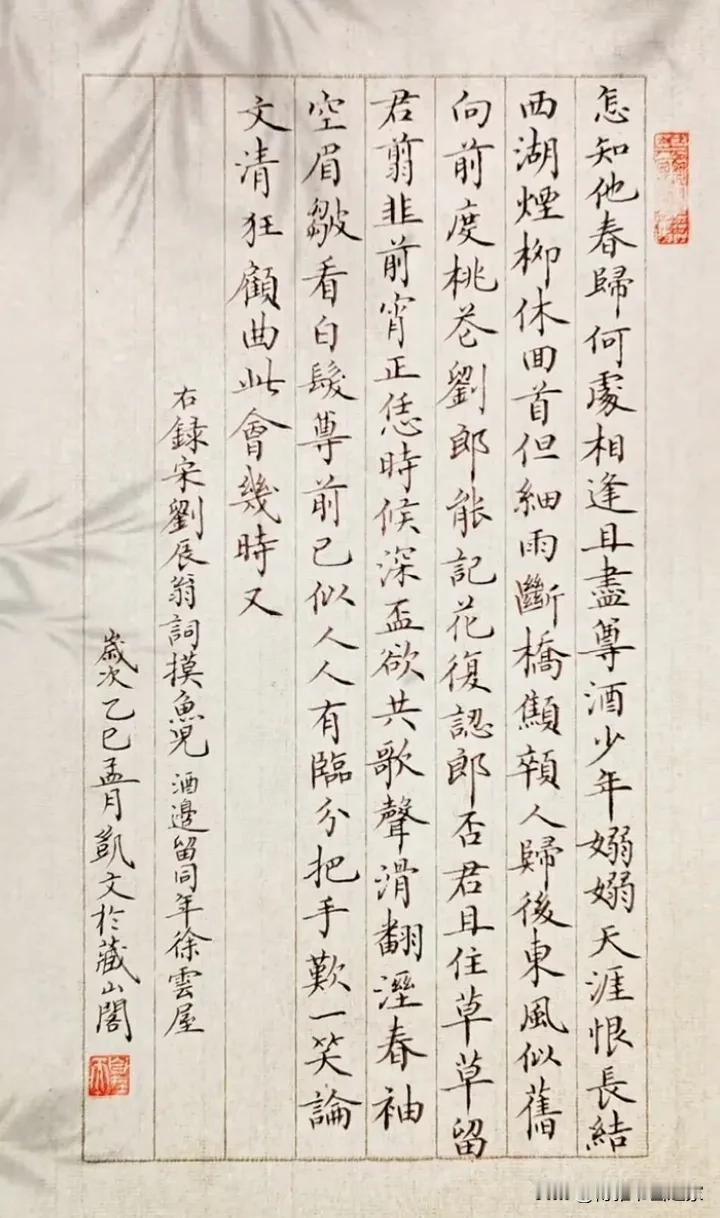 怎知他春歸何處相逢且盡尊酒少年嫋嫋天涯恨長結
西湖煙柳休回首但細雨斷橋顦顇人歸後東風似舊
向前度桃花劉郎能記花復認郎否君且住草草留
君翦韭前宵正恁時候深盃欲共歌聲滑翻溼春袖
空眉皺看白髮尊前已似人人有臨分把手歎一笑論
文清狂顧曲此會幾時又
右錄宋劉辰翁詞摸魚兒 酒邊留同年徐雲屋
歲次乙巳孟月凱文於藏山閣